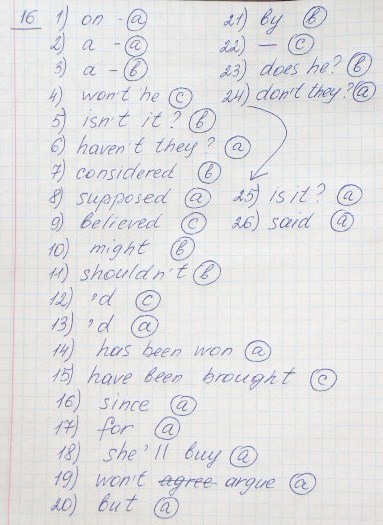 16 1) on - a
2) a - a
3) a - b
4) won't he c
5) isn't it? b
6) haven't they? a
7) considered b
8) supposed a
9) believed c
10) might b
11) shouldn't b
12) 'd c
13) 'd a
14) has been won a
15) have been brought c
16) since a
17) for a
18) she'll buy a
19) won't agree argue a
20) but a
21) by b
22) — c
23) does he? b
24) don't they? a
25) is it? a
26) said a